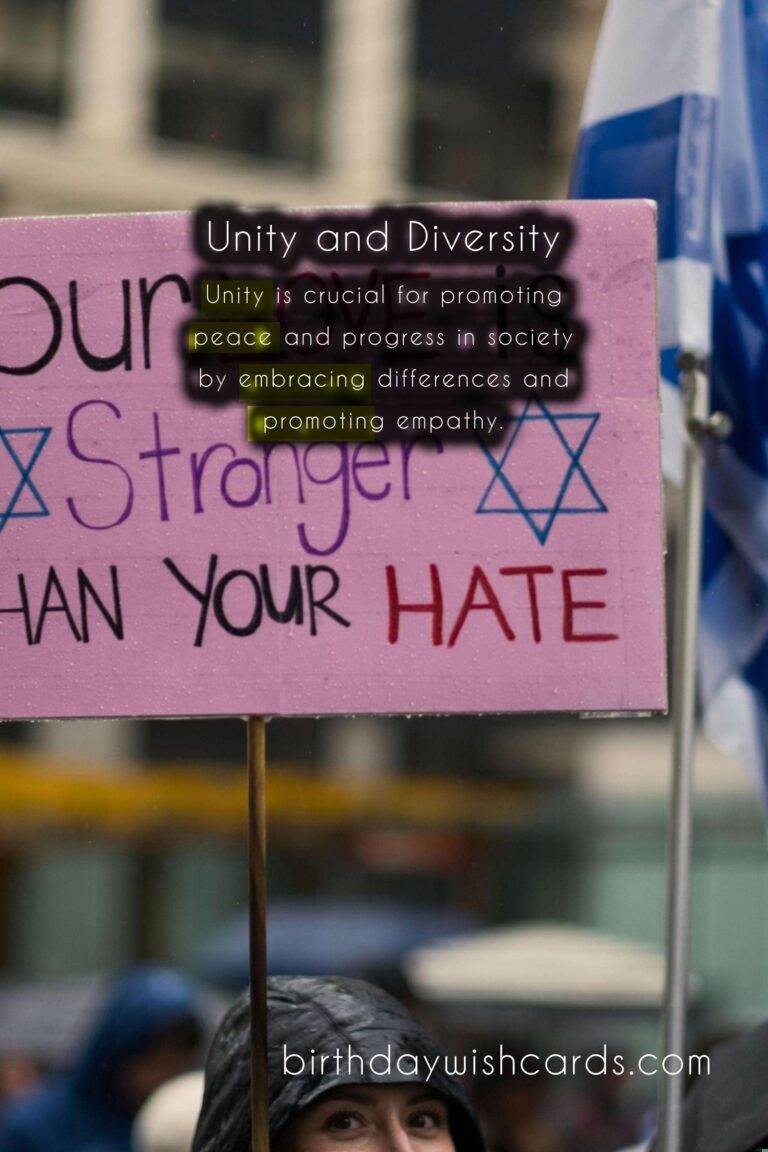 Unity and Diversity
Unity is crucial for promoting
peace and progress in society
by embracing differences and
promoting empathy.
our LOVE is
Stronger
HAN YOUR HATE
birthdaywishcards.com